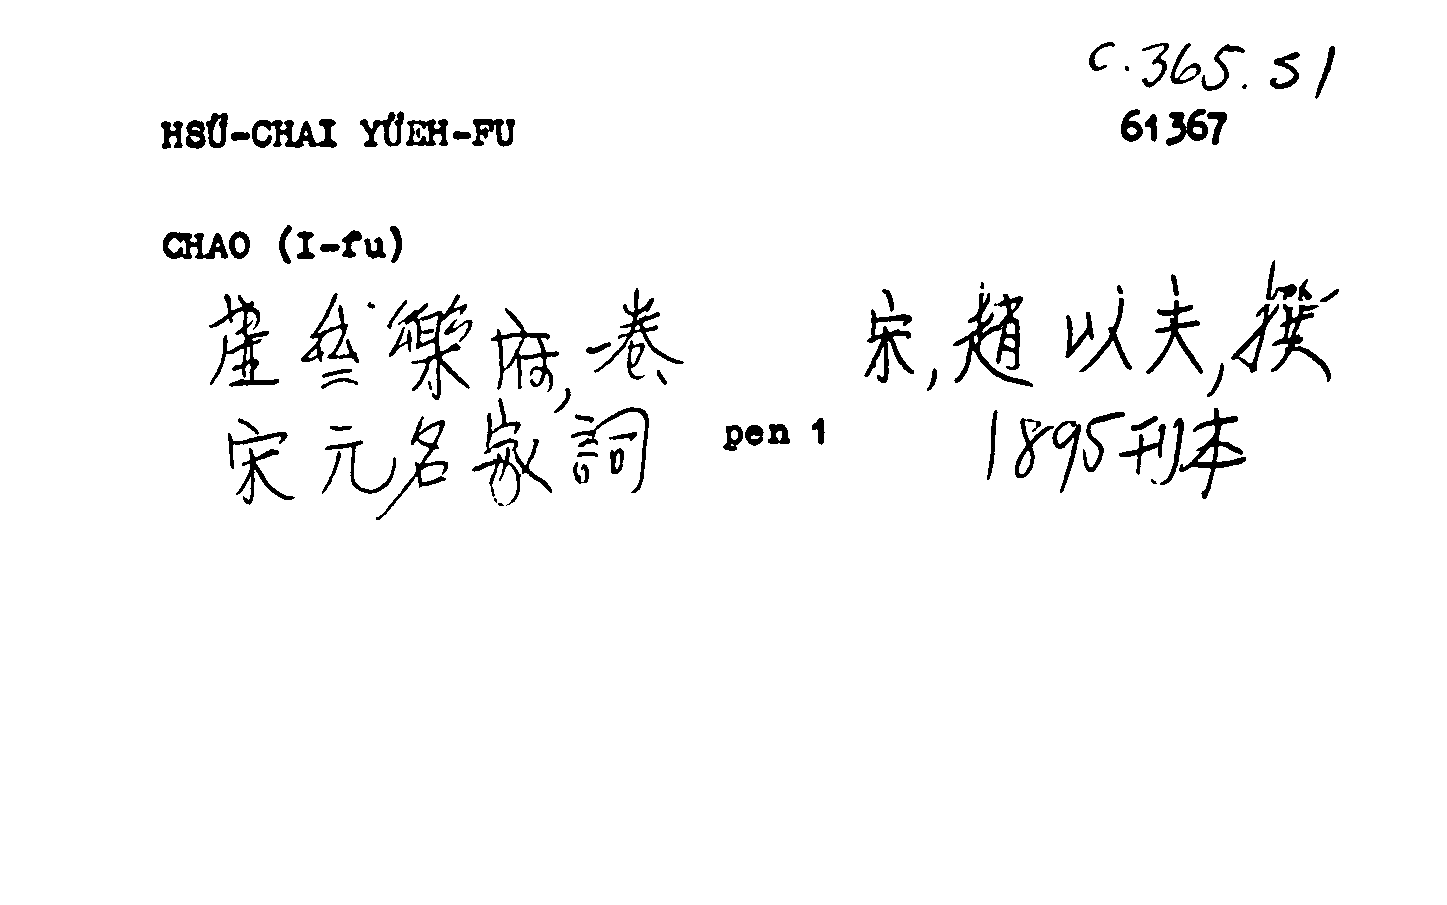 c.365.s1
HSÜ-CHAI YÜEH-FU
61367
CHAO (I-fu)
虛齋樂府,一卷 宋,趙以夫,撰
宋元名家詞 pen 1 1895刊本